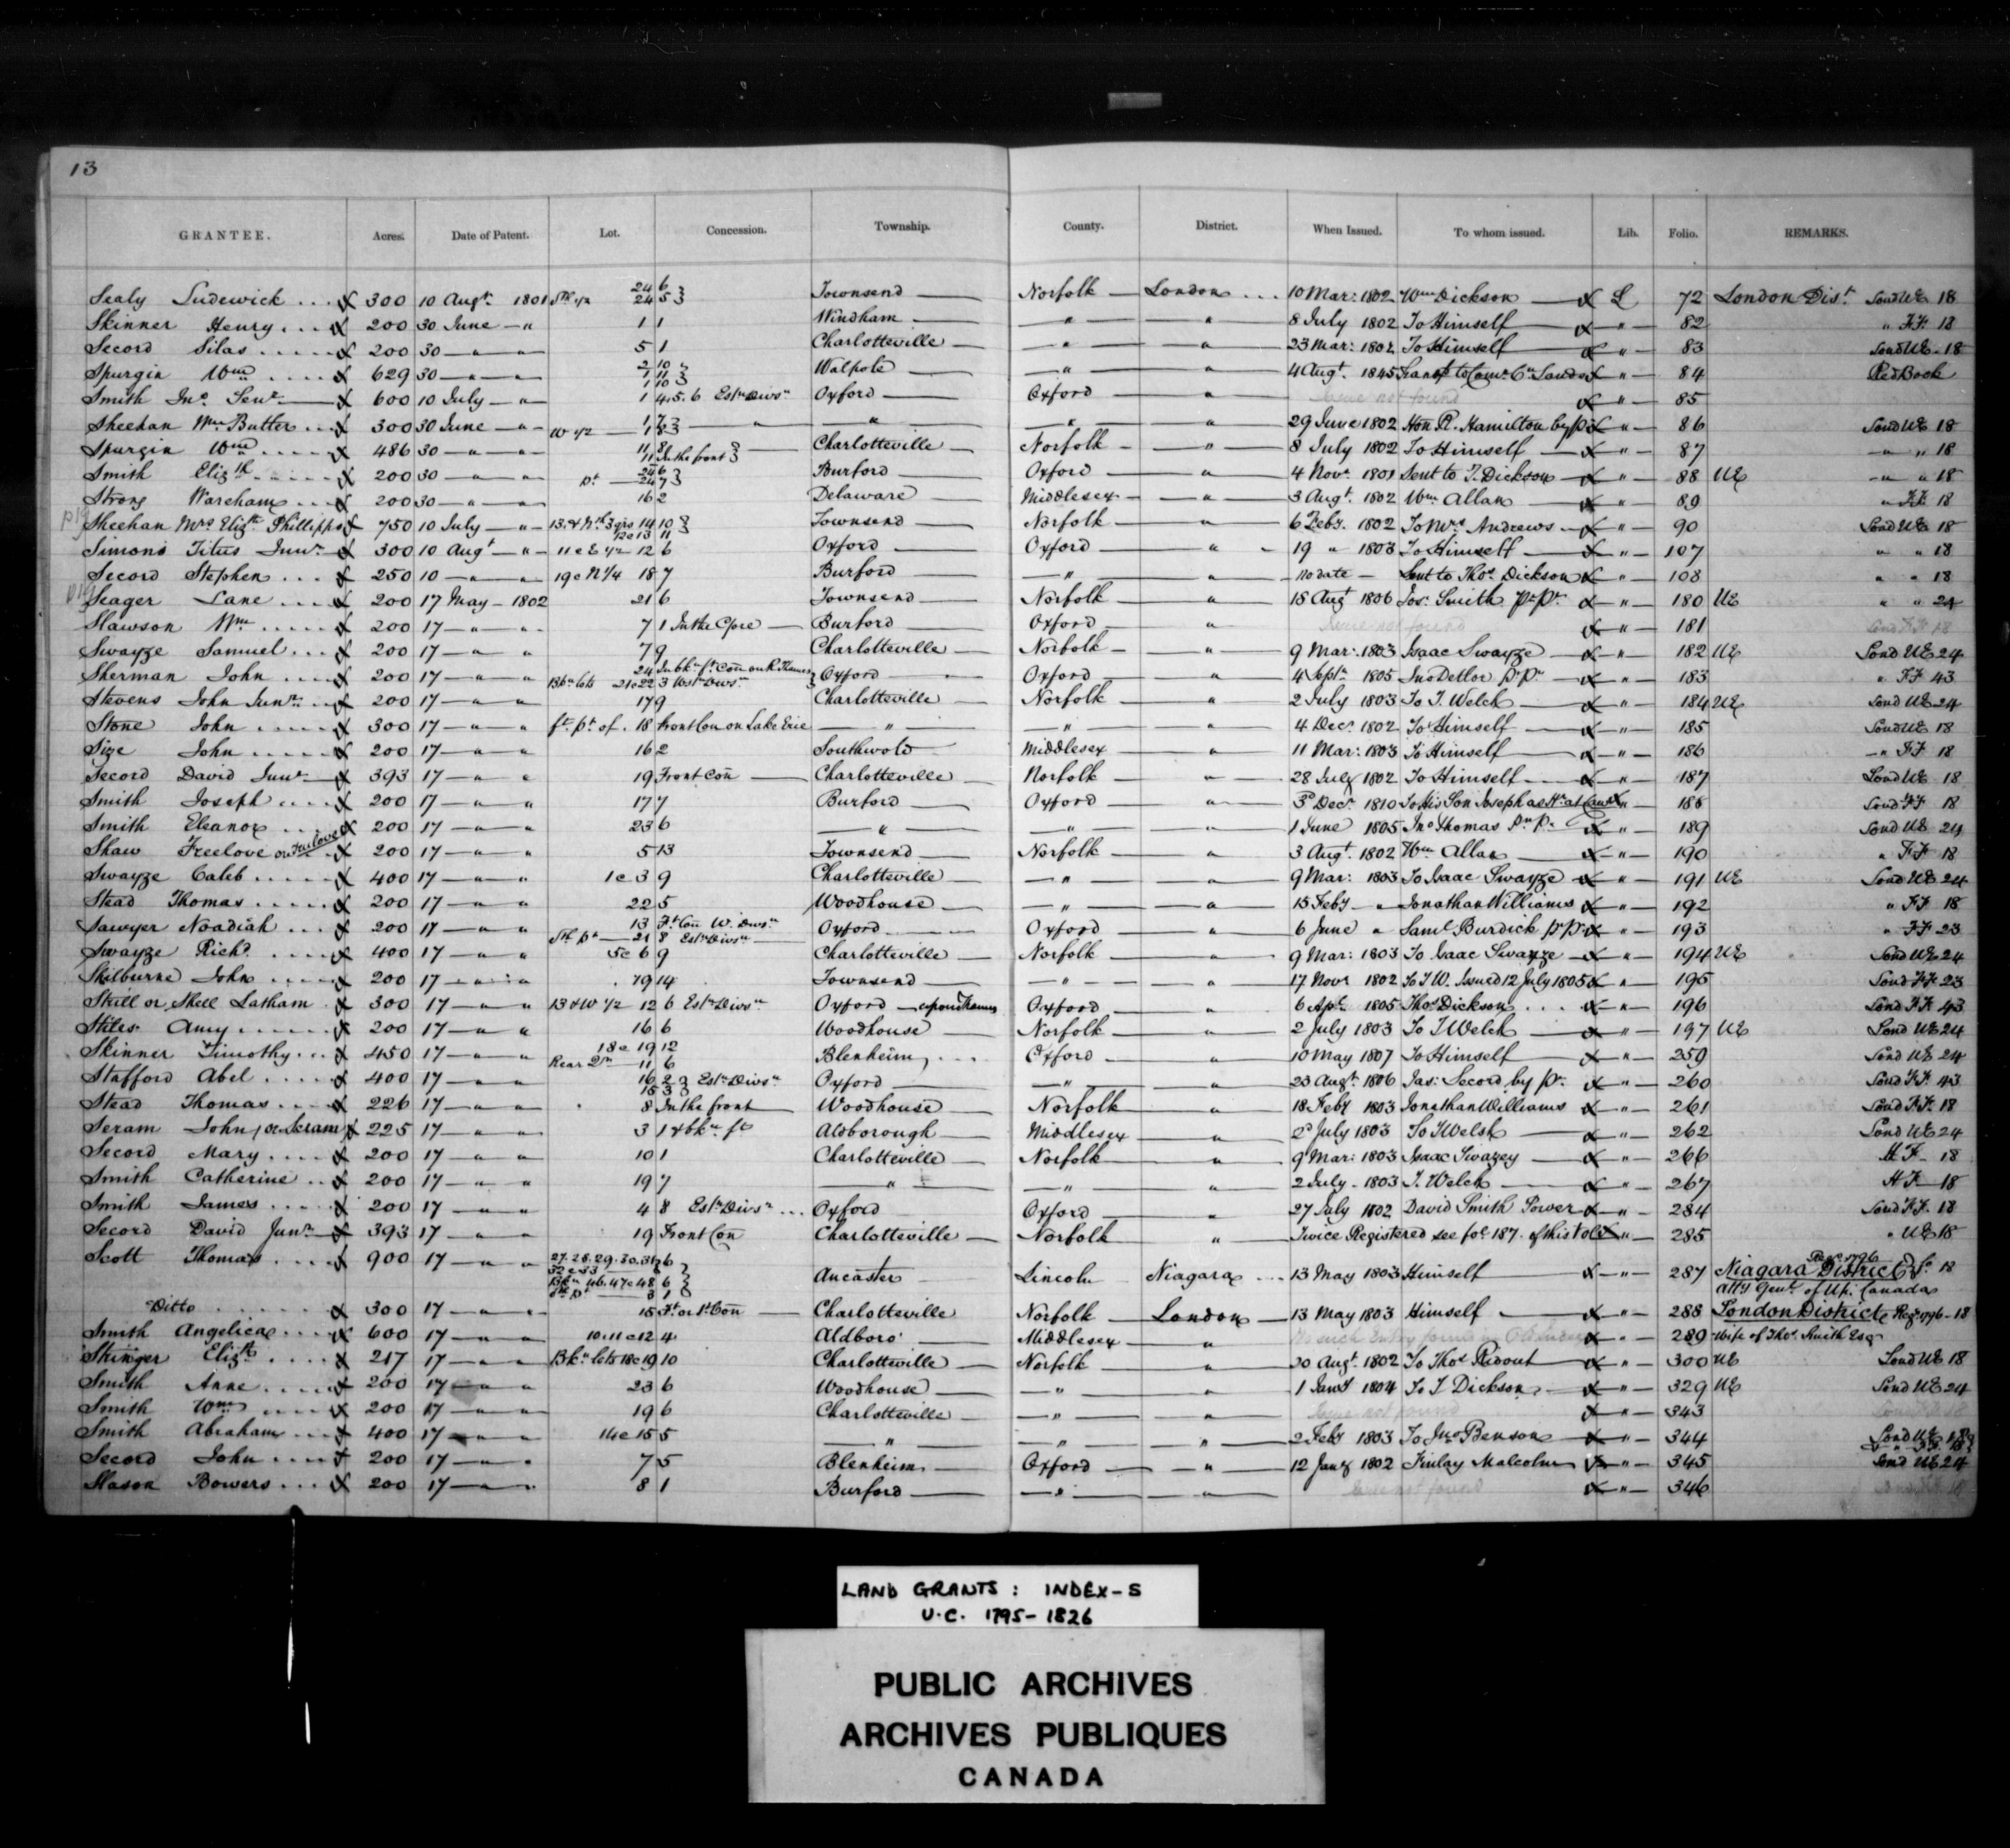 13
GRANTEE. Acres. Date of Patent. Lot. Concession. Township. County. District. When Issued. To whom issued. Lib. Folio. REMARKS.
Sealy Ludewick 300 10 Augt. 1801 Sth 1/2 24 6 24 5 Townsend Norfolk London 10 Mar: 1802 Wm Dickson L 72 London Dist. Lond UE 18
Skinner Henry 200 30 June " 1 1 Windham " " 8 July 1802 To Himself " 82 " F.F. 18
Secord Silas 200 30 " " 5 1 Charlotteville " " 23 Mar: 1802 To Himself " 83 Lond UE 18
Spurgin Wm 629 30 " " 2 10 1 11 1 10 Walpole " " 4 Augt. 1845 " 84 Red Book
Smith Jno. Senr 600 10 July " 1 4.5.6 Estn Divsn Oxford Oxford " Issue not found " 85
Sheehan Wm Butler 300 30 June " W 1/2 1 " " " " 29 June 1802 Hon R. Hamilton by " 86 Lond UE 18
Spurgin Wm 486 30 " " 11 8 11 In the front Charlotteville Norfolk " 8 July 1802 To Himself " 87 " " 18
Smith Elizth 200 30 " " pt 24 6 24 7 Burford Oxford " 4 Novr. 1801 Sent to T. Dickson " 88 UE " " 18
Strong Wareham 200 30 " " 16 2 Delaware Middlesex " 3 Augt. 1802 Wm Allan " 89 " F.F. 18
p19 Sheehan Mrs Elizth Phillipps 750 10 July " 13 & Nth 3 qrs 14 10 12 & 13 11 Townsend Norfolk " 6 Feby. 1802 To Mrs Andrews " 90 Lond UE 18
Simons Titus Junr 300 10 Augt " 11 & E 1/2 12 6 Oxford Oxford " 19 " 1803 To Himself " 107 " " 18
Secord Stephen 250 10 " " 19 & N 1/4 18 7 Burford " " No date Sent to Thos. Dickson " 108 " " 18
p19 Seager Lane 200 17 May 1802 21 6 Townsend Norfolk " 18 Augt 1806 Jos. Smith Pr. Pr. " 180 UE " " 24
Slawson Wm 200 17 " " 7 1 In the Gore Burford Oxford " Issue not found " 181 Lond F.F. 18
Swayze Samuel 200 17 " " 7 9 Charlotteville Norfolk " 9 Mar: 1803 Isaac Swayze " 182 UE Lond UE 24
Sherman John 200 17 " " 24 In bkn ft. Con on R. Thames Bkn lots 21 & 22 3 Wstn Divsn Oxford Oxford " 4 Septr. 1805 Jno Detlor Pr. Pr. " 183 " F.F. 43
Stevens John Junr 200 17 " " 17 9 Charlotteville Norfolk " 2 July 1803 To T. Welch " 184 UE Lond UE 24
Stone John 300 17 " " ft. pt. of. 18 Front Con on Lake Erie " " " 4 Decr. 1802 To Himself " 185 Lond UE 18
Size John 200 17 " " 16 2 Southwold Middlesex " 11 Mar: 1803 To Himself " 186 " F.F. 18
Secord David Junr 393 17 " " 19 Front Con Charlotteville Norfolk " 28 July 1802 To Himself " 187 Lond UE 18
Smith Joseph 200 17 " " 17 7 Burford Oxford " 3d Decr. 1810 To His Son Joseph as Hr. at Law " 188 Lond F.F. 18
Smith Eleanor 200 17 " " 23 6 " " " 1 June 1805 Jno Thomas Pr. Pr. " 189 Lond UE 24
Shaw Freelove or Truelove 200 17 " " 5 13 Townsend Norfolk " 3 Augt. 1802 Wm Allan " 190 " F.F. 18
Swayze Caleb 400 17 " " 1 & 3 9 Charlotteville " " 9 Mar: 1803 To Isaac Swayze " 191 UE Lond UE 24
Stead Thomas 200 17 " " 22 5 Woodhouse " " 15 Feby " Jonathan Williams " 192 " F.F. 18
Sawyer Noadiah 200 17 " " 13 Ft. Con W. Divsn Sth pt 21 8 Estn Divsn Oxford Oxford " 6 June " Saml Burdick pr pr " 193 " F.F. 23
Swayze Richd. 400 17 " " 5 & 6 9 Charlotteville Norfolk " 9 Mar: 1803 To Isaac Swayze " 194 UE Lond UE 24
Skilburne John 200 17 " " 19 14 Townsend " " 17 Novr 1802 To T.W. Issued 12 July 1805 " 195 Lond F.F. 23
Skill or Skell Latham 300 17 " " 13 & W 1/2 12 6 Estn Divsn Oxford upon Thames Oxford " 6 Apl. 1805 Thos Dickson " 196 Lond F.F. 43
Stiles Amy 200 17 " " 16 6 Woodhouse Norfolk " 2 July 1803 To T Welch " 197 UE Lond UE 24
Skinner Timothy 450 17 " " 18 & 19 12 Rear 11 6 Blenheim Oxford " 10 May 1807 To Himself " 259 Lond UE 24
Stafford Abel 400 17 " " 16 2 15 3 Estn Divsn Oxford " " 23 Augt. 1806 Jas: Secord by Pr. " 260 Lond F.F. 43
Stead Thomas 226 17 " " 8 In the front Woodhouse Norfolk " 18 Feby 1803 Jonathan Williams " 261 Lond F.F. 18
Seram John, or Scram 225 17 " " 3 1 & bkn ft Aldborough Middlesex " 2d July 1803 To T Welsh " 262 Lond UE 24
Secord Mary 200 17 " " 10 1 Charlotteville Norfolk " 9 Mar: 1803 Isaac Swazey " 266 18
Smith Catherine 200 17 " " 19 7 " " " 2 July 1803 T. Welch " 267 18
Smith James 200 17 " " 4 8 Estn Divsn Oxford Oxford " 27 July 1802 David Smith Power " 284 Lond F.F. 18
Secord David Junr 393 17 " " 19 Front Con Charlotteville Norfolk " Twice Registered see fol. 187. of this Vol. " 285 " UE 18
Scott Thomas 900 17 " " 27.28.29.30.31 6 32 & 33 Bkn 46.47 & 48 6 Sth pt 3 1 Ancaster Lincoln Niagara 13 May 1803 Himself " 287 Niagara District 18 Atty Genl. of Up. Canada
Ditto 300 17 " " 15 Ft. or 1st Con Charlotteville Norfolk London 13 May 1803 Himself " 288 London District 18
Smith Angelica 600 17 " " 10.11 & 12 4 Aldboro' Middlesex " No such Entry found in Old Index " 289 Wife of Thos. Smith Esqr
Stringer Elizth 217 17 " " Bkn lots 18 & 19 10 Charlotteville Norfolk " 20 Augt. 1802 To Thos Ridout " 300 UE Lond UE 18
Smith Anne 200 17 " " 23 6 Woodhouse " " 1 Jany 1804 To T Dickson " 329 UE Lond UE 24
Smith Wm 200 17 " " 19 6 Charlotteville " " Issue not found " 343
Smith Abraham 400 17 " " 14 & 15 5 " " " 2 Feby 1803 To Jno Benson " 344 Lond UE 18
Secord John 200 17 " " 7 5 Blenheim Oxford " 12 Jany 1802 Finlay Malcolm " 345 Lond UE 24
Slason Bowers 200 17 " " 8 1 Burford " " Issue not found " 346
LAND GRANTS: INDEX-S
U.C. 1795-1826
PUBLIC ARCHIVES
ARCHIVES PUBLIQUES
CANADA